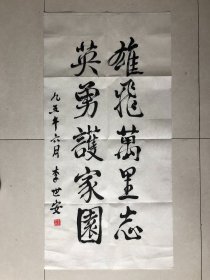 雄飛萬里志
英勇護家園
九五年六月 李世安